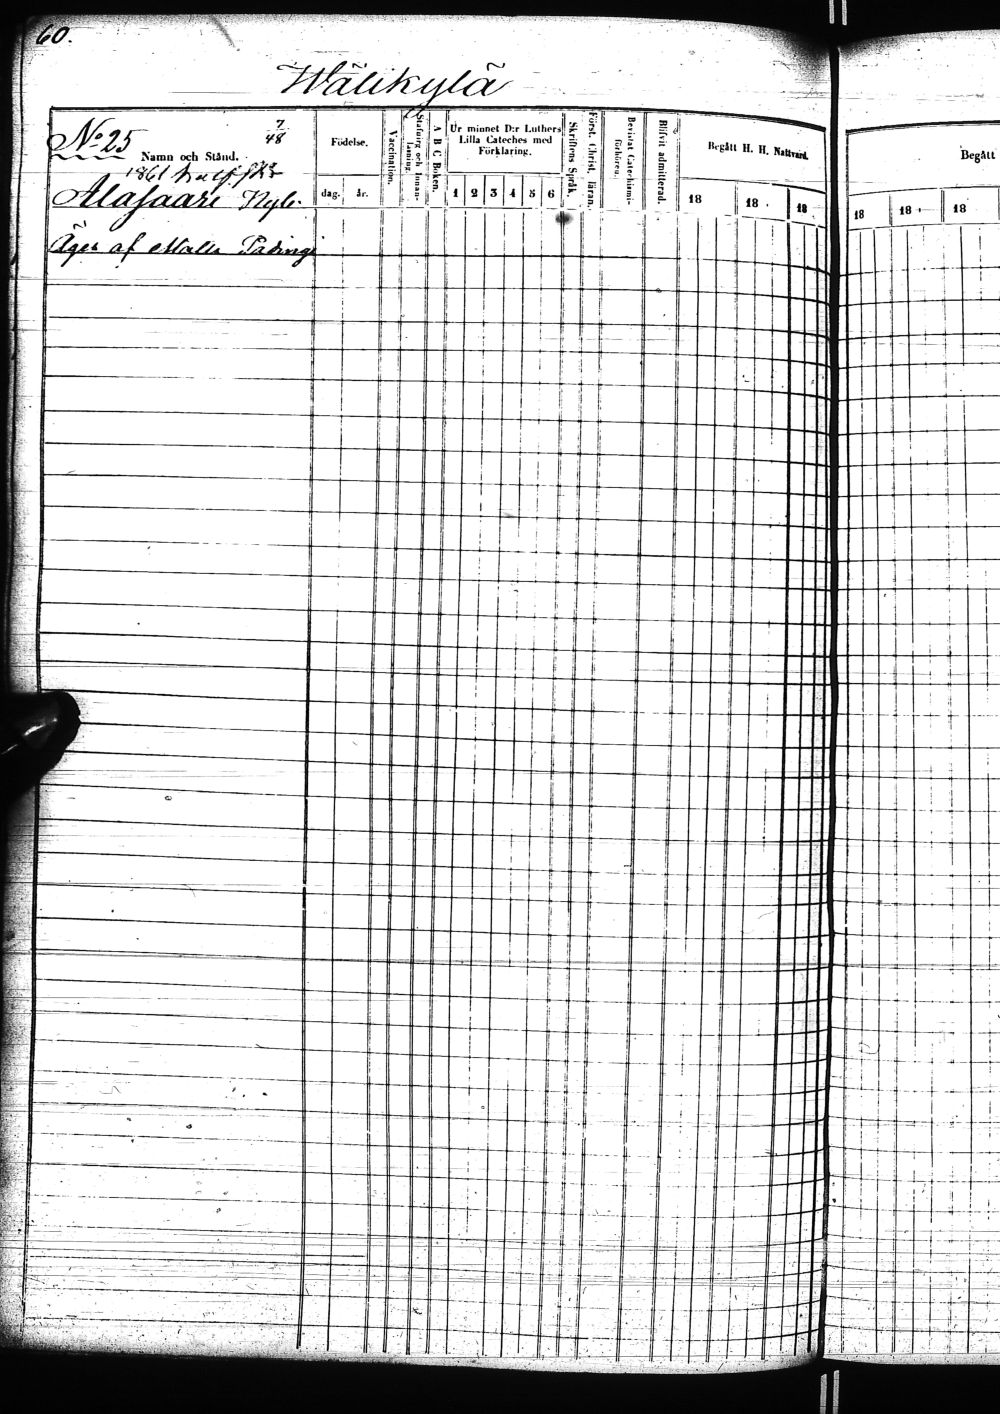 60.
Wälikylä
No 25
7/48
Namn och Stånd.
1861
Alasaari Nyb.
Äges af Malla
Födelse.
dag. år.
Vaccination.
Stafning och Innan-
läsning.
A B C Boken.
Ur minnet D:r Luthers
Lilla Cateches med
Förklaring.
1 2 3 4 5 6
Skriftens Språk.
Först. Christ. läran.
Bevistat Catechismi-
förhören.
Blifvit admitterad.
Begått H. H. Nattvard.
18 18 18
Begått
18 18 18